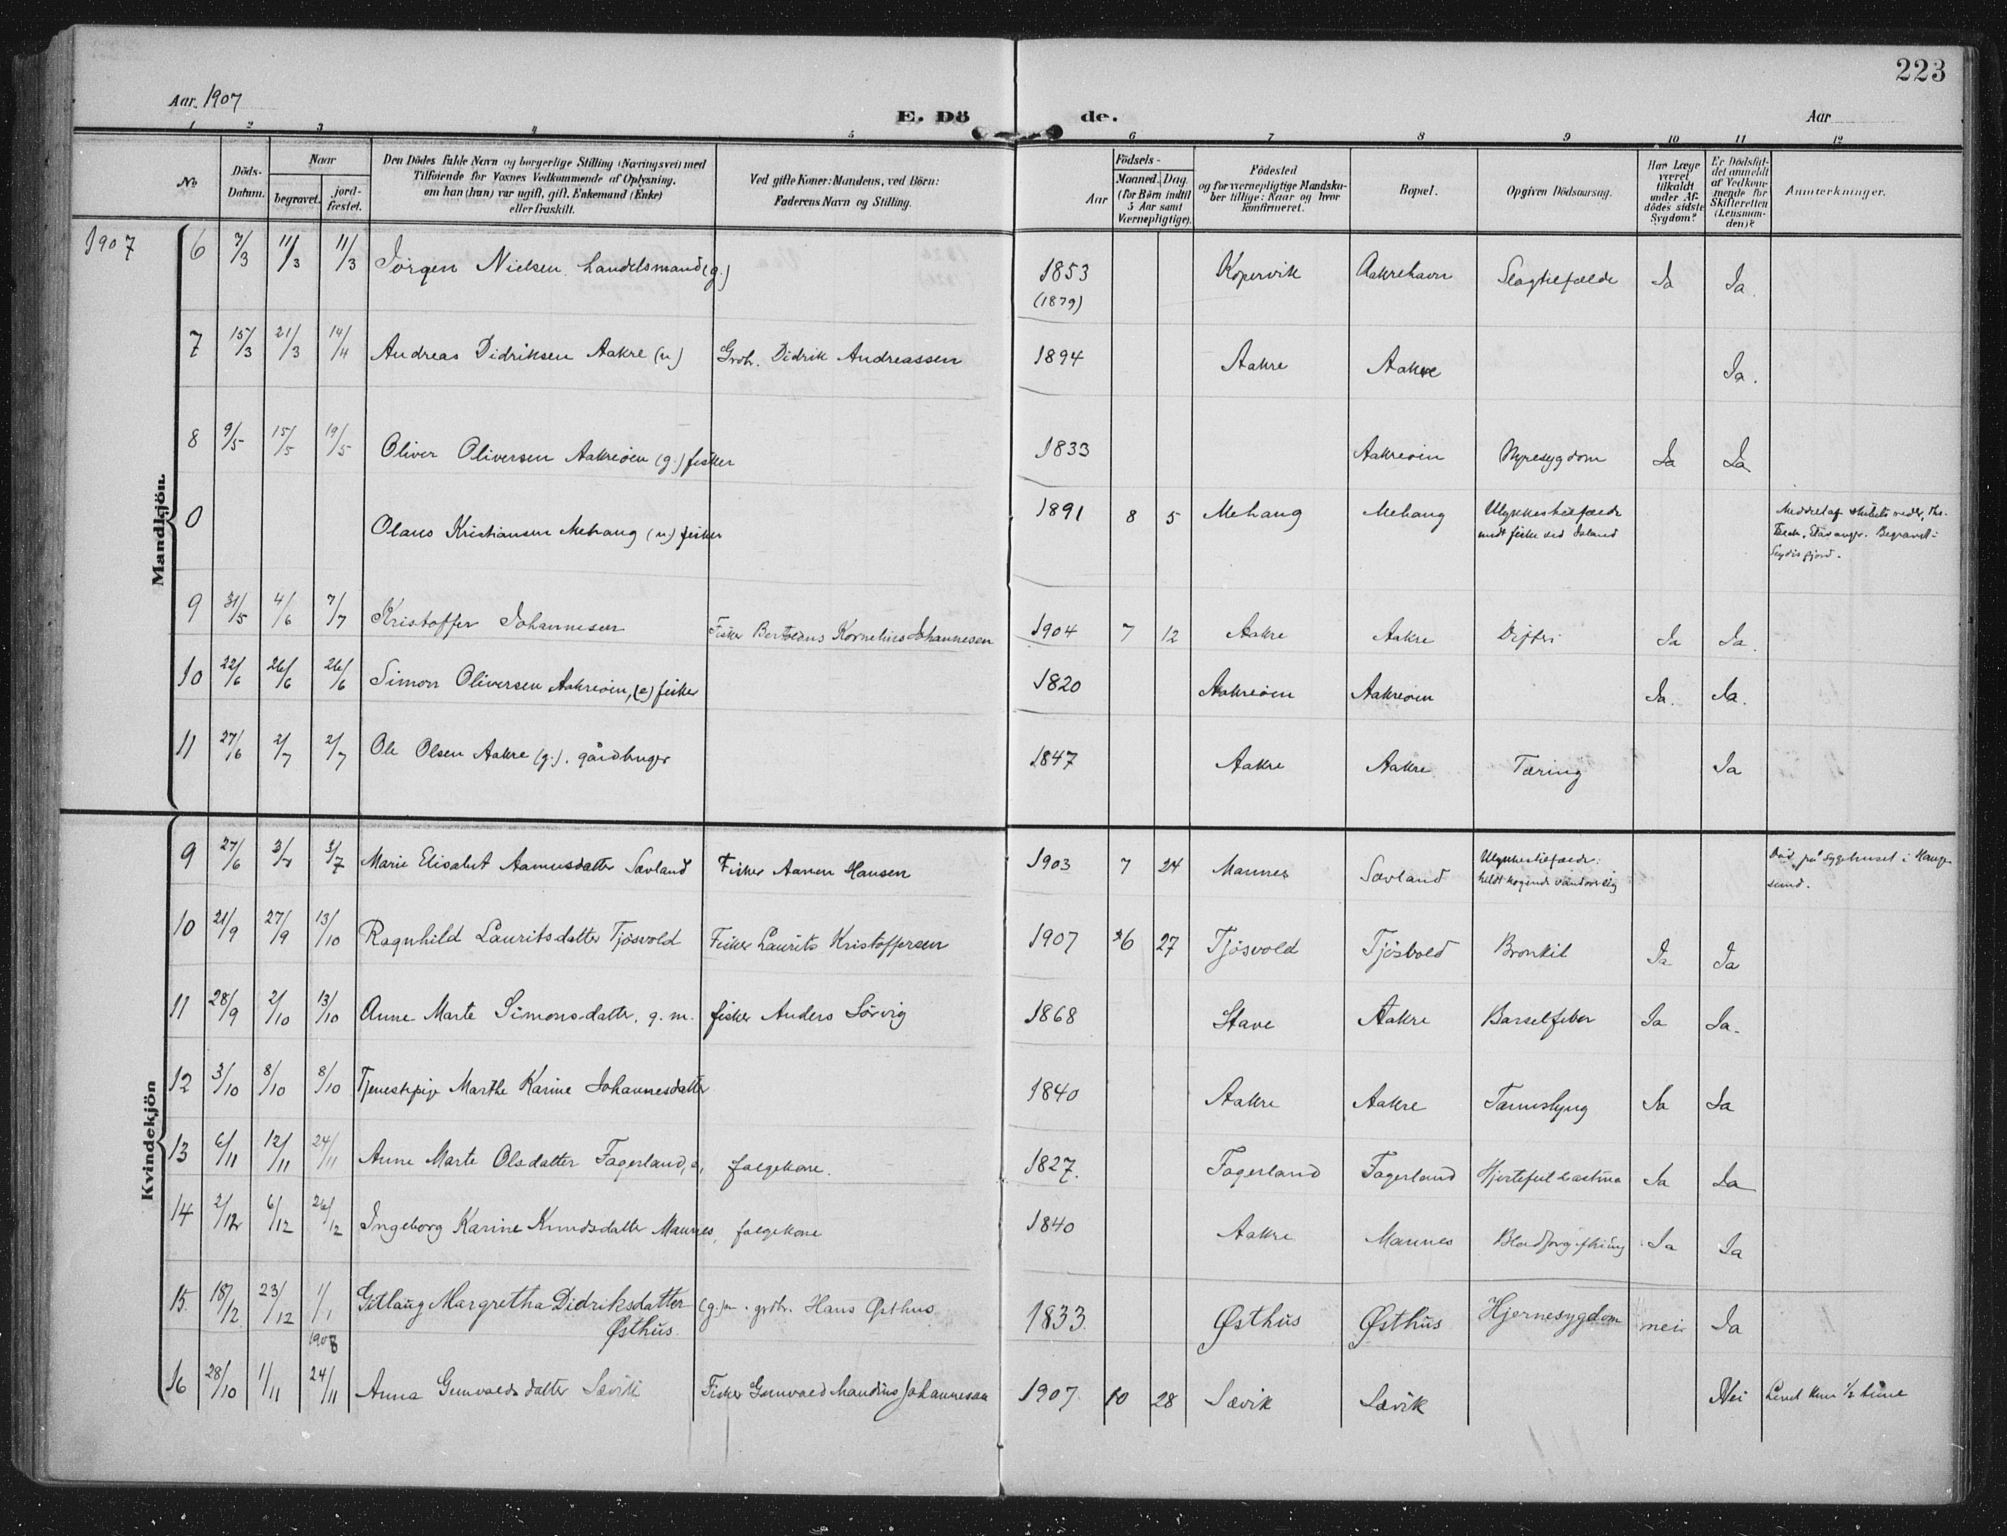 223
Aar. 1907
E. Dö de.
Aar
1 2 3 4 5 6 7 8 9 10 11 12
No
Döds-Datum.
Naar
begravet.
jord-fæstet.
Den Dödes fulde Navn og borgerlige Stilling (Næringsvei) med
Tilföiende for Voxnes Vedkommende af Oplysning,
om han (hun) var ugift, gift, Enkemand (Enke)
eller fraskilt.
Ved gifte Koner: Mandens, ved Börn:
Faderens Navn og Stilling.
Födsels-
Aar
Maaned. Dag.
(for Börn indtil
5 Aar samt
Værnepligtige).
Födested
og for værnepligtige Mandska-
ber tillige: Naar og hvor
konfirmeret.
Bopæl.
Opgiven Dödsaarsag.
Har Læge
været
tilkaldt
under Af-
dödes sidste
Sygdom?
Er Dödsfal-
det anmeldt
af Vedkom-
mende for
Skifteretten
(Lensman-
den)?
Anmærkninger.
1907
Mandkjön.
6 7/3 11/3 11/3 Jörgen Nielsen handelsmand (g.) 1853 (1879) Kopervik Aakrehavn Slagtilfælde Ja Ja.
7 15/3 21/3 14/4 Andreas Didriksen Aakre (u) Grdbr. Didrik Andreassen 1894 Aakre Aakre Ja.
8 9/5 15/5 19/5 Oliver Oliversen Aakreöen (g.) fisker 1833 Aakreöen Nyresygdom Ja Ja
0 Olaus Kristiansen Mehaug (u) fisker 1891 8 5 Mehaug Mehaug Ulykkestilfælde
undt fiske ved Island
Meddelt af skibets reder,
Stavanger. Begravet
Seydisfjord.
9 31/5 4/6 7/7 Kristoffer Johannesen Fisker Kornelius Johannesen 1904 7 12 Aakre Aakre Difteri Ja Ja.
10 22/6 26/6 26/6 Simon Oliversen Aakreöen, (e) fisker 1820 Aakreöen Aakreöen Ja. Ja.
11 27/6 2/7 2/7 Ole Olsen Aakre (g.). gårdbruger 1847 Aakre Aakre Tæring Ja
Kvindekjön
9 27/6 3/7 3/7 Marie Elisabet Aamusdatter Sævland Fisker Aamen Hansen 1903 7 24 Mannes Sævland Ulykkestilfælde:
heldt kogende vand over sig
Död på sygehuset i Hauge-
sund.
10 21/9 27/9 13/10 Ragnhild Lauritsdatter Tjösvold Fisker Laurits Kristoffersen 1907 6 27 Tjösvold Tjösvold Bronkit Ja Ja
11 28/9 2/10 13/10 Anne Marte Simonsdatter, g. m. fisker Anders Sörvig 1868 Stave Aakre Barselfeber Ja Ja.
12 3/10 8/10 8/10 Tjenestepige Marthe Karine Johannesdatter 1840 Aakre Aakre Tarmslyng Ja Ja
13 6/11 12/11 24/11 Anne Marte Olsdatter Fagerland, e, folgekone. 1827. Fagerland Fagerland Hjertefeil & astma Ja Ja
14 2/12 6/12 26/12 Ingeborg Karine Knudsdatter Mannes, folgekone 1840 Aakre Mannes Blodforgiftning Ja Ja
15. 18/12 23/12 1/1 1908 Gitlaug Margretha Didriksdatter (g.) m. grdbr. Hans Østhus
Østhus. 1833. Østhus Østhus Hjernesygdom nei Ja
16 28/10 1/11 24/11 Anna Gunvaldsdatter Sævik Fisker Gunvald Mandius Johannesen 1907. 10 28 Sævik Sævik Nei Levet kun 1/2 time